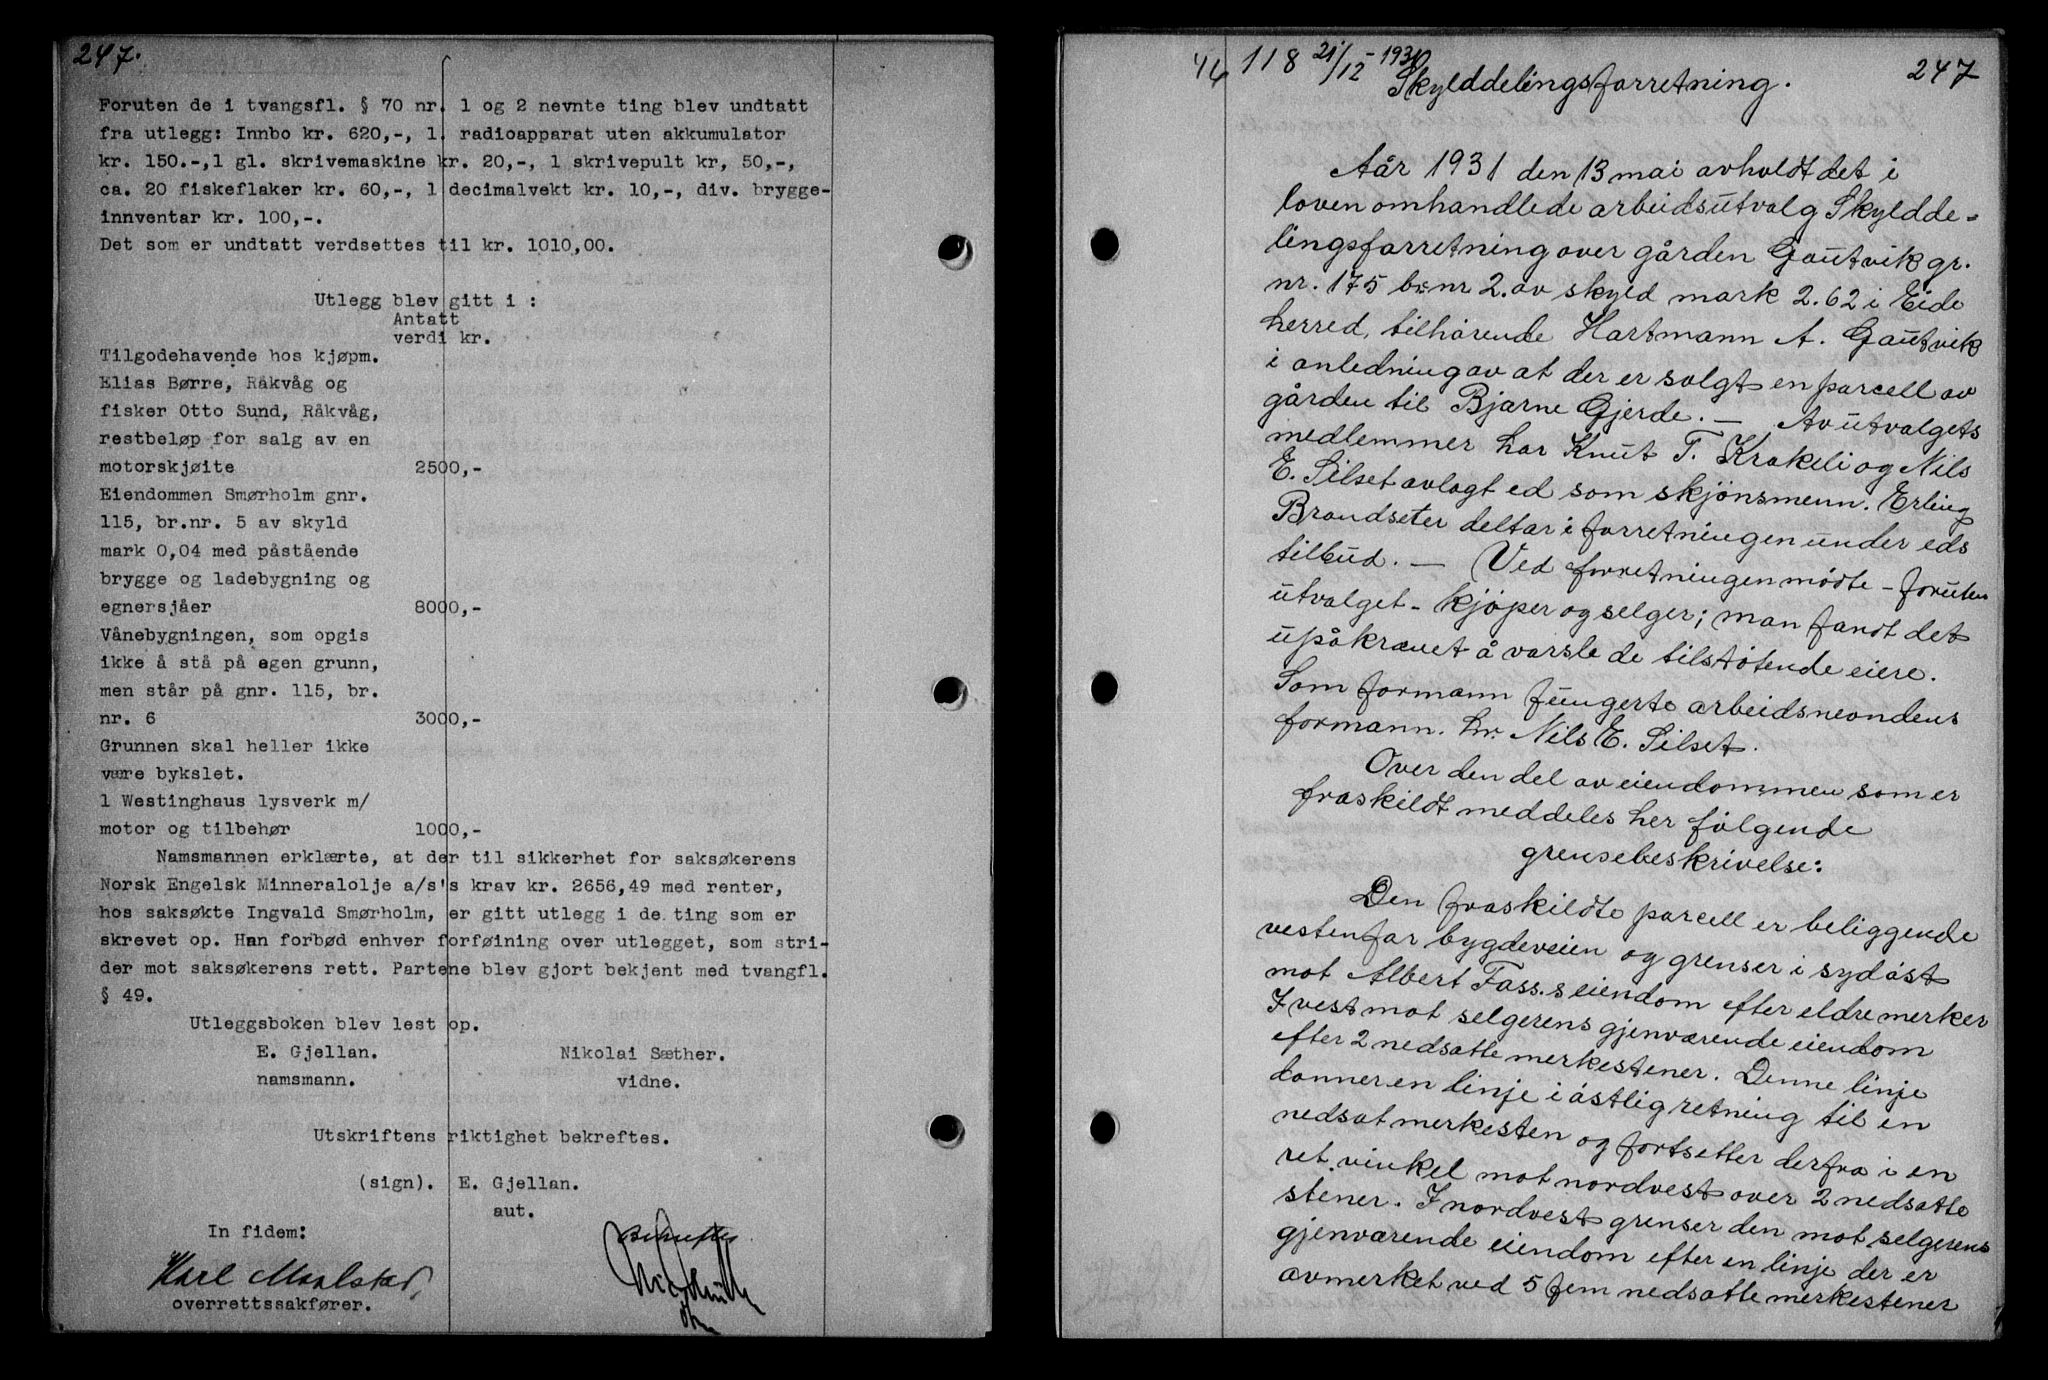 247.
Foruten de i tvangsfl. § 70 nr. 1 og 2 nevnte ting blev undtatt
fra utlegg: Innbo kr. 620,-, 1 radioapparat uten akkumulator
kr. 150.-,1 gl. skrivemaskine kr. 20,-, 1 skrivepult kr, 50,-,
ca. 20 fiskeflaker kr. 60,-, 1 decimalvekt kr. 10,-, div. brygge-
innventar kr. 100,-.
Det som er undtatt verdsettes til kr. 1010,00.
Utlegg blev gitt i :
Antatt
verdi kr.
Tilgodehavende hos kjøpm.
Elias Børre, Råkvåg og
fisker Otto Sund, Råkvåg,
restbeløp for salg av en
motorskjøite 2500,-
Eiendommen Smørholm gnr.
115, br.nr. 5 av skyld
mark 0,04 med påstående
brygge og ladebygning og
egnersjåer 8000,-
Vånebygningen, som opgis
ikke å stå på egen grunn,
men står på gnr. 115, br.
nr. 6 3000,-
Grunnen skal heller ikke
være bykslet.
1 Westinghaus lysverk m/
motor og tilbehør 1000,-
Namsmannen erklærte, at der til sikkerhet for saksøkerens
Norsk Engelsk Minneralolje a/s's krav kr. 2656,49 med renter,
hos saksøkte Ingvald Smørholm, er gitt utlegg i de ting som er
skrevet op. Han forbød enhver forføining over utlegget, som stri-
der mot saksøkerens rett. Partene blev gjort bekjent med tvangfl.
§ 49.
Utleggsboken blev lest op.
E. Gjellan. Nikolai Sæther.
namsmann. vidne.
Utskriftens riktighet bekreftes.
(sign). E. Gjellan.
aut.
In fidem:
Bekreftes
Karl Maalstad,
overrettssakfører.
118 21/12 - 1931 247
Skylddelingsforretning.
Aår 1931 den 13 mai avholdt det i
loven omhandlede arbeidsutvalg Skyldde-
lingsforretning over gården Gautvik gr.
nr. 175 br nr 2. av skyld mark 2.62 i Eide
herred, tilhørende Hartmann A. Gautvik
i anledning av at der er solgt en parcell av
gården til Bjarne Gjerde. — Av utvalgets
medlemmer har Knut T. Krakeli og Nils
E. Silset avlagt ed som skjønsmenn. Erling
Brandseter deltar i forretningen under eds
tilbud. — Ved forretningen mødte - foruten
utvalget - kjøper og selger; man fandt det
upåkrævet å varsle de tilstøtende eiere.
Som formann fungerte arbeidsnevndens
formann. hr. Nils E. Silset.
Over den del av eiendommen som er
fraskildt meddeles her følgende
grensebeskrivelse:
Den fraskildte parcell er beliggende
vestenfor bygdeveien og grenser i sydøst
mot Albert Fass. s eiendom efter eldre merker
I vest mot selgerens gjenværende eiendom
efter 2 nedsatte merkestener. Denne linje
danner en linje i østlig retning til en
nedsat merkesten og fortsetter derfra i en
ret vinkel mot nordvest over 2 nedsatte
stener. I nordvest grenser den mot selgerens
gjenværende eiendom efter en linje der er
avmerket ved 5 fem nedsatte merkestener